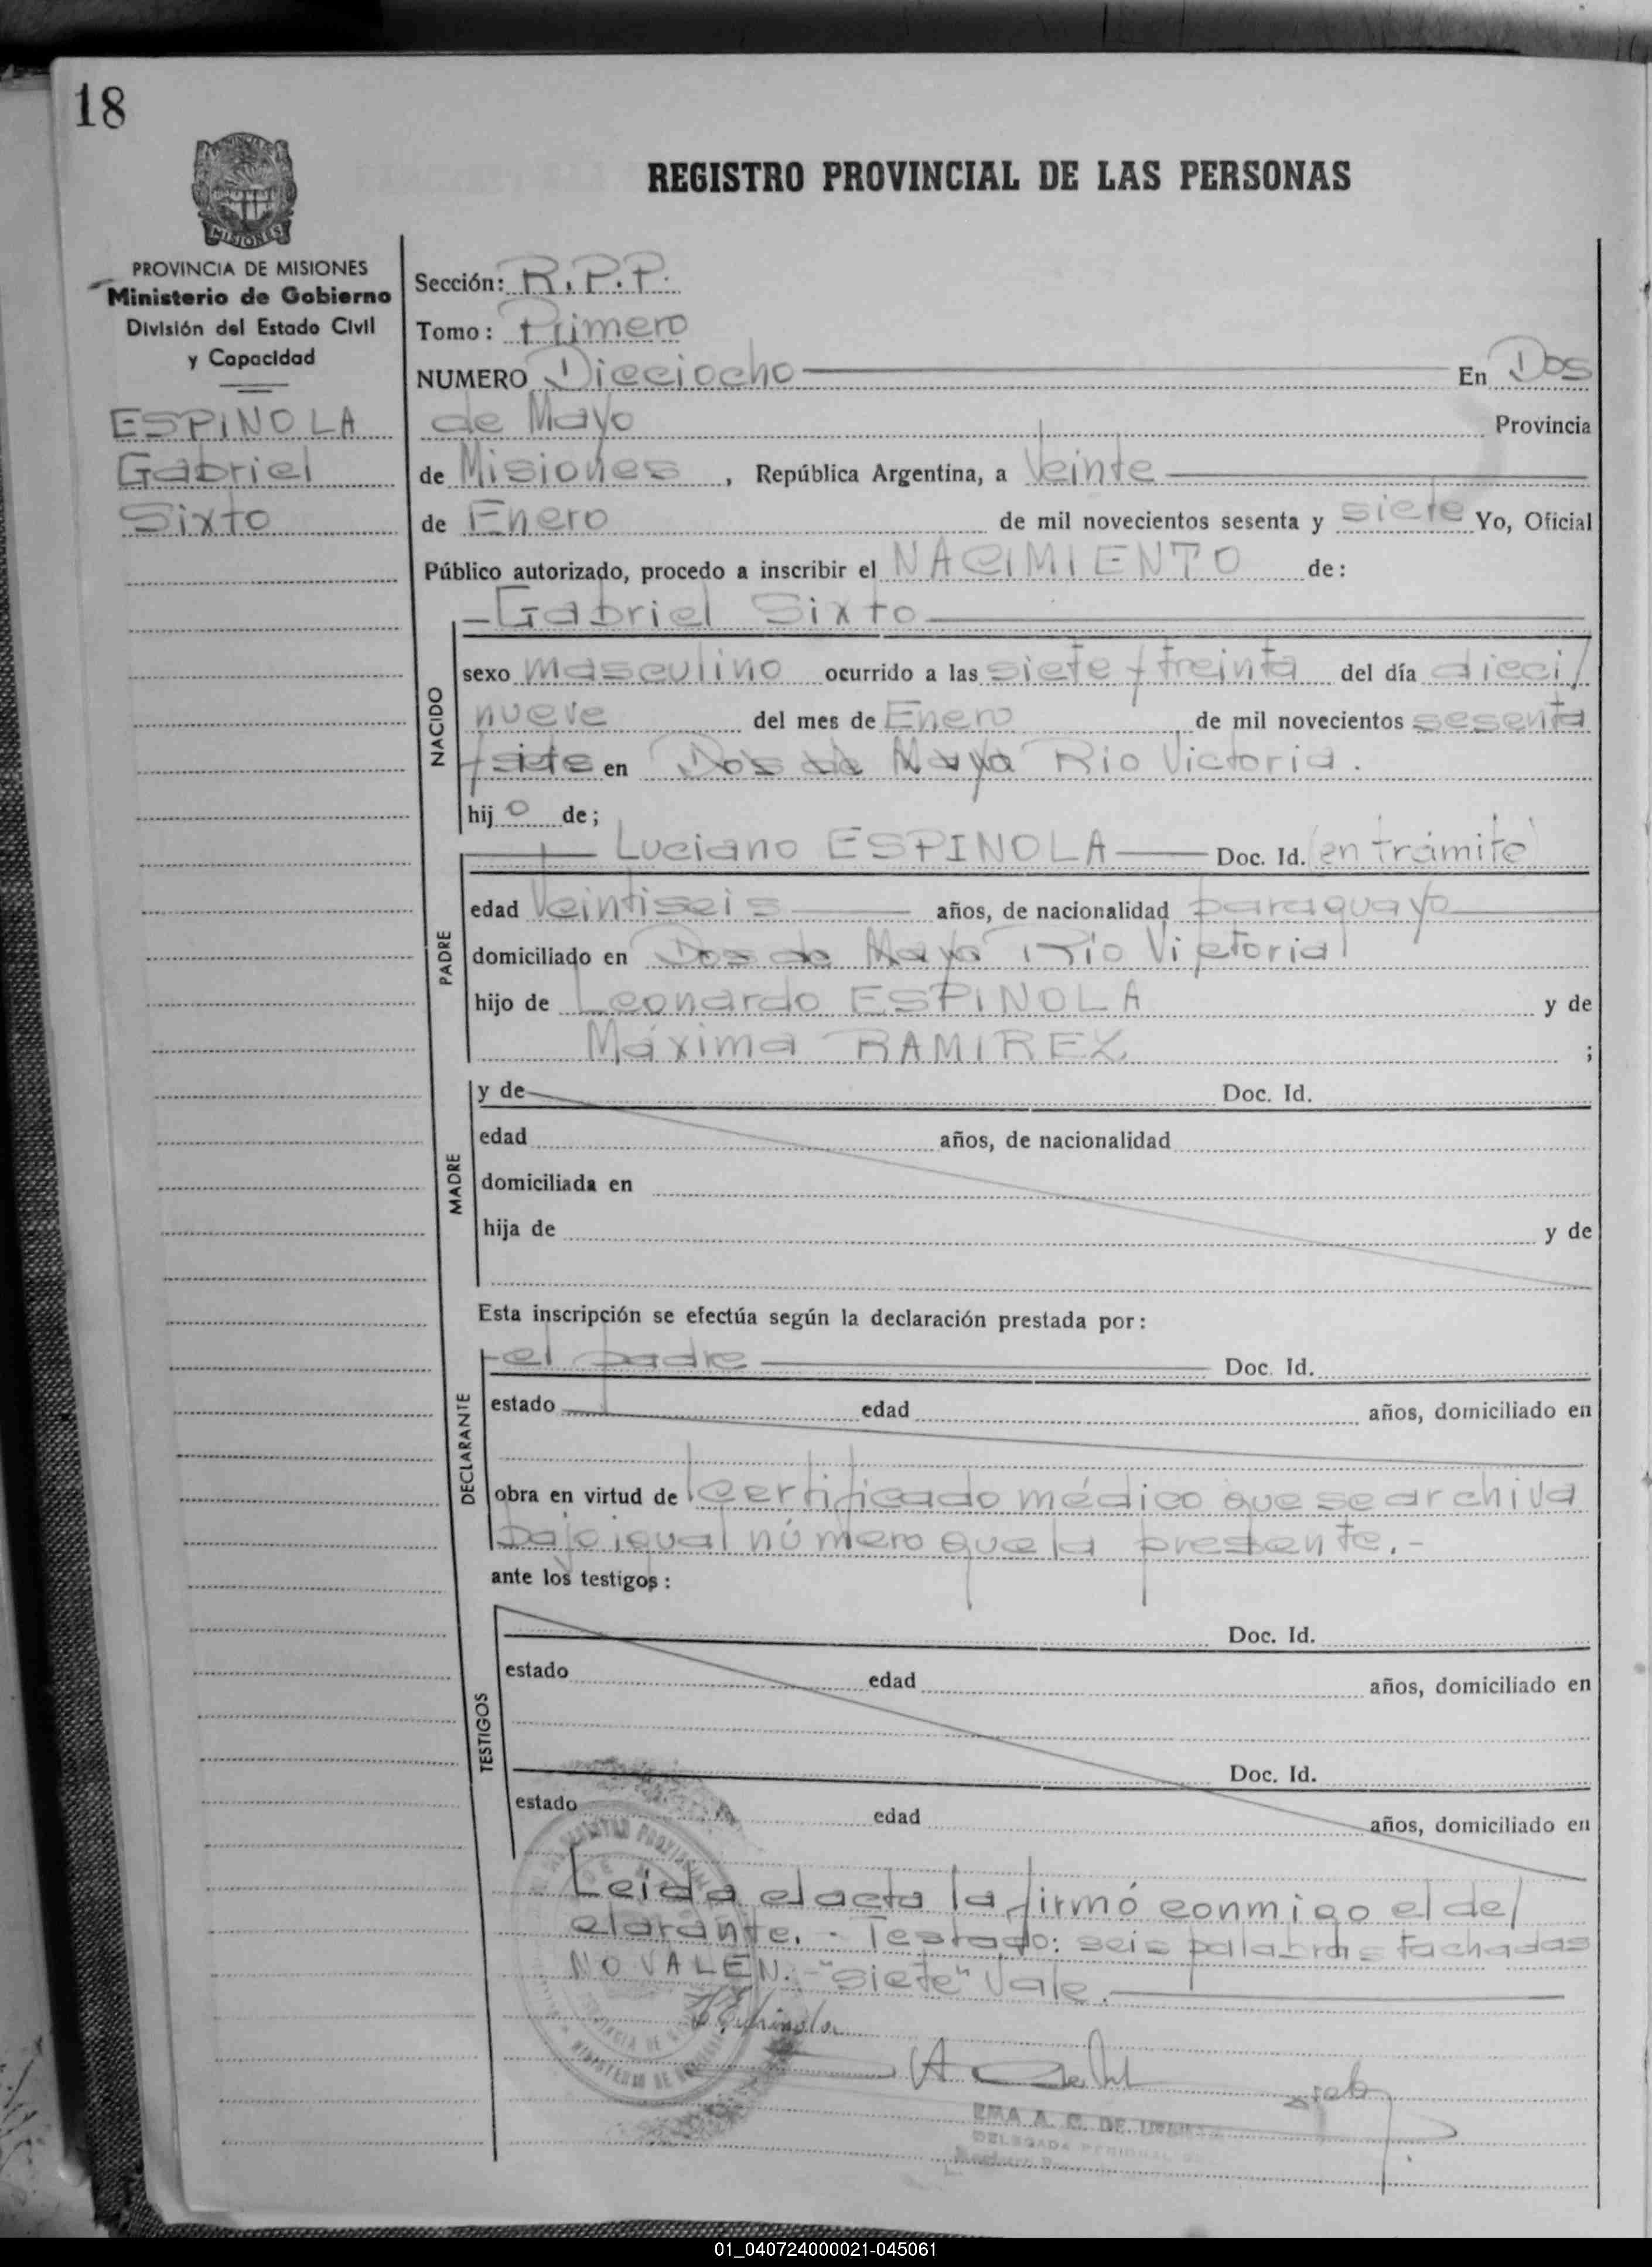 18
REGISTRO PROVINCIAL DE LAS PERSONAS
MISIONES
PROVINCIA DE MISIONES
Ministerio de Gobierno
División del Estado Civil
y Capacidad
ESPINOLA
Gabriel
Sixto
Sección: R.P.P.
Tomo: Primero
NUMERO Dieciocho En Dos
de Mayo Provincia
de Misiones, República Argentina, a Veinte
de Enero de mil novecientos sesenta y siete Yo, Oficial
Público autorizado, procedo a inscribir el NACIMIENTO de:
Gabriel Sixto
NACIDO
sexo masculino ocurrido a las siete y treinta del día dieci/
nueve del mes de Enero de mil novecientos sesenta
y siete en Dos de Mayo Rio Victoria.
hijo de;
PADRE
Luciano ESPINOLA Doc. Id. (en trámite)
edad Veintiseis años, de nacionalidad paraguayo
domiciliado en Dos de Mayo Rio Victoria
hijo de Leonardo ESPINOLA y de
Máxima RAMIREZ ;
MADRE
y de Doc. Id.
edad años, de nacionalidad
domiciliada en
hija de y de
Esta inscripción se efectúa según la declaración prestada por:
DECLARANTE
el padre Doc. Id.
estado edad años, domiciliado en
obra en virtud de certificado médico que se archiva
bajo igual número que la presente.-
ante los testigos:
TESTIGOS
Doc. Id.
estado edad años, domiciliado en
Doc. Id.
estado edad años, domiciliado en
Leída el acta la firmó conmigo el de/
clarante.- Testado: seis palabras tachadas
NO VALEN.- "siete" Vale.
L Espinola
EMA A. C. DE
DELEGADA
01_040724000021-045061